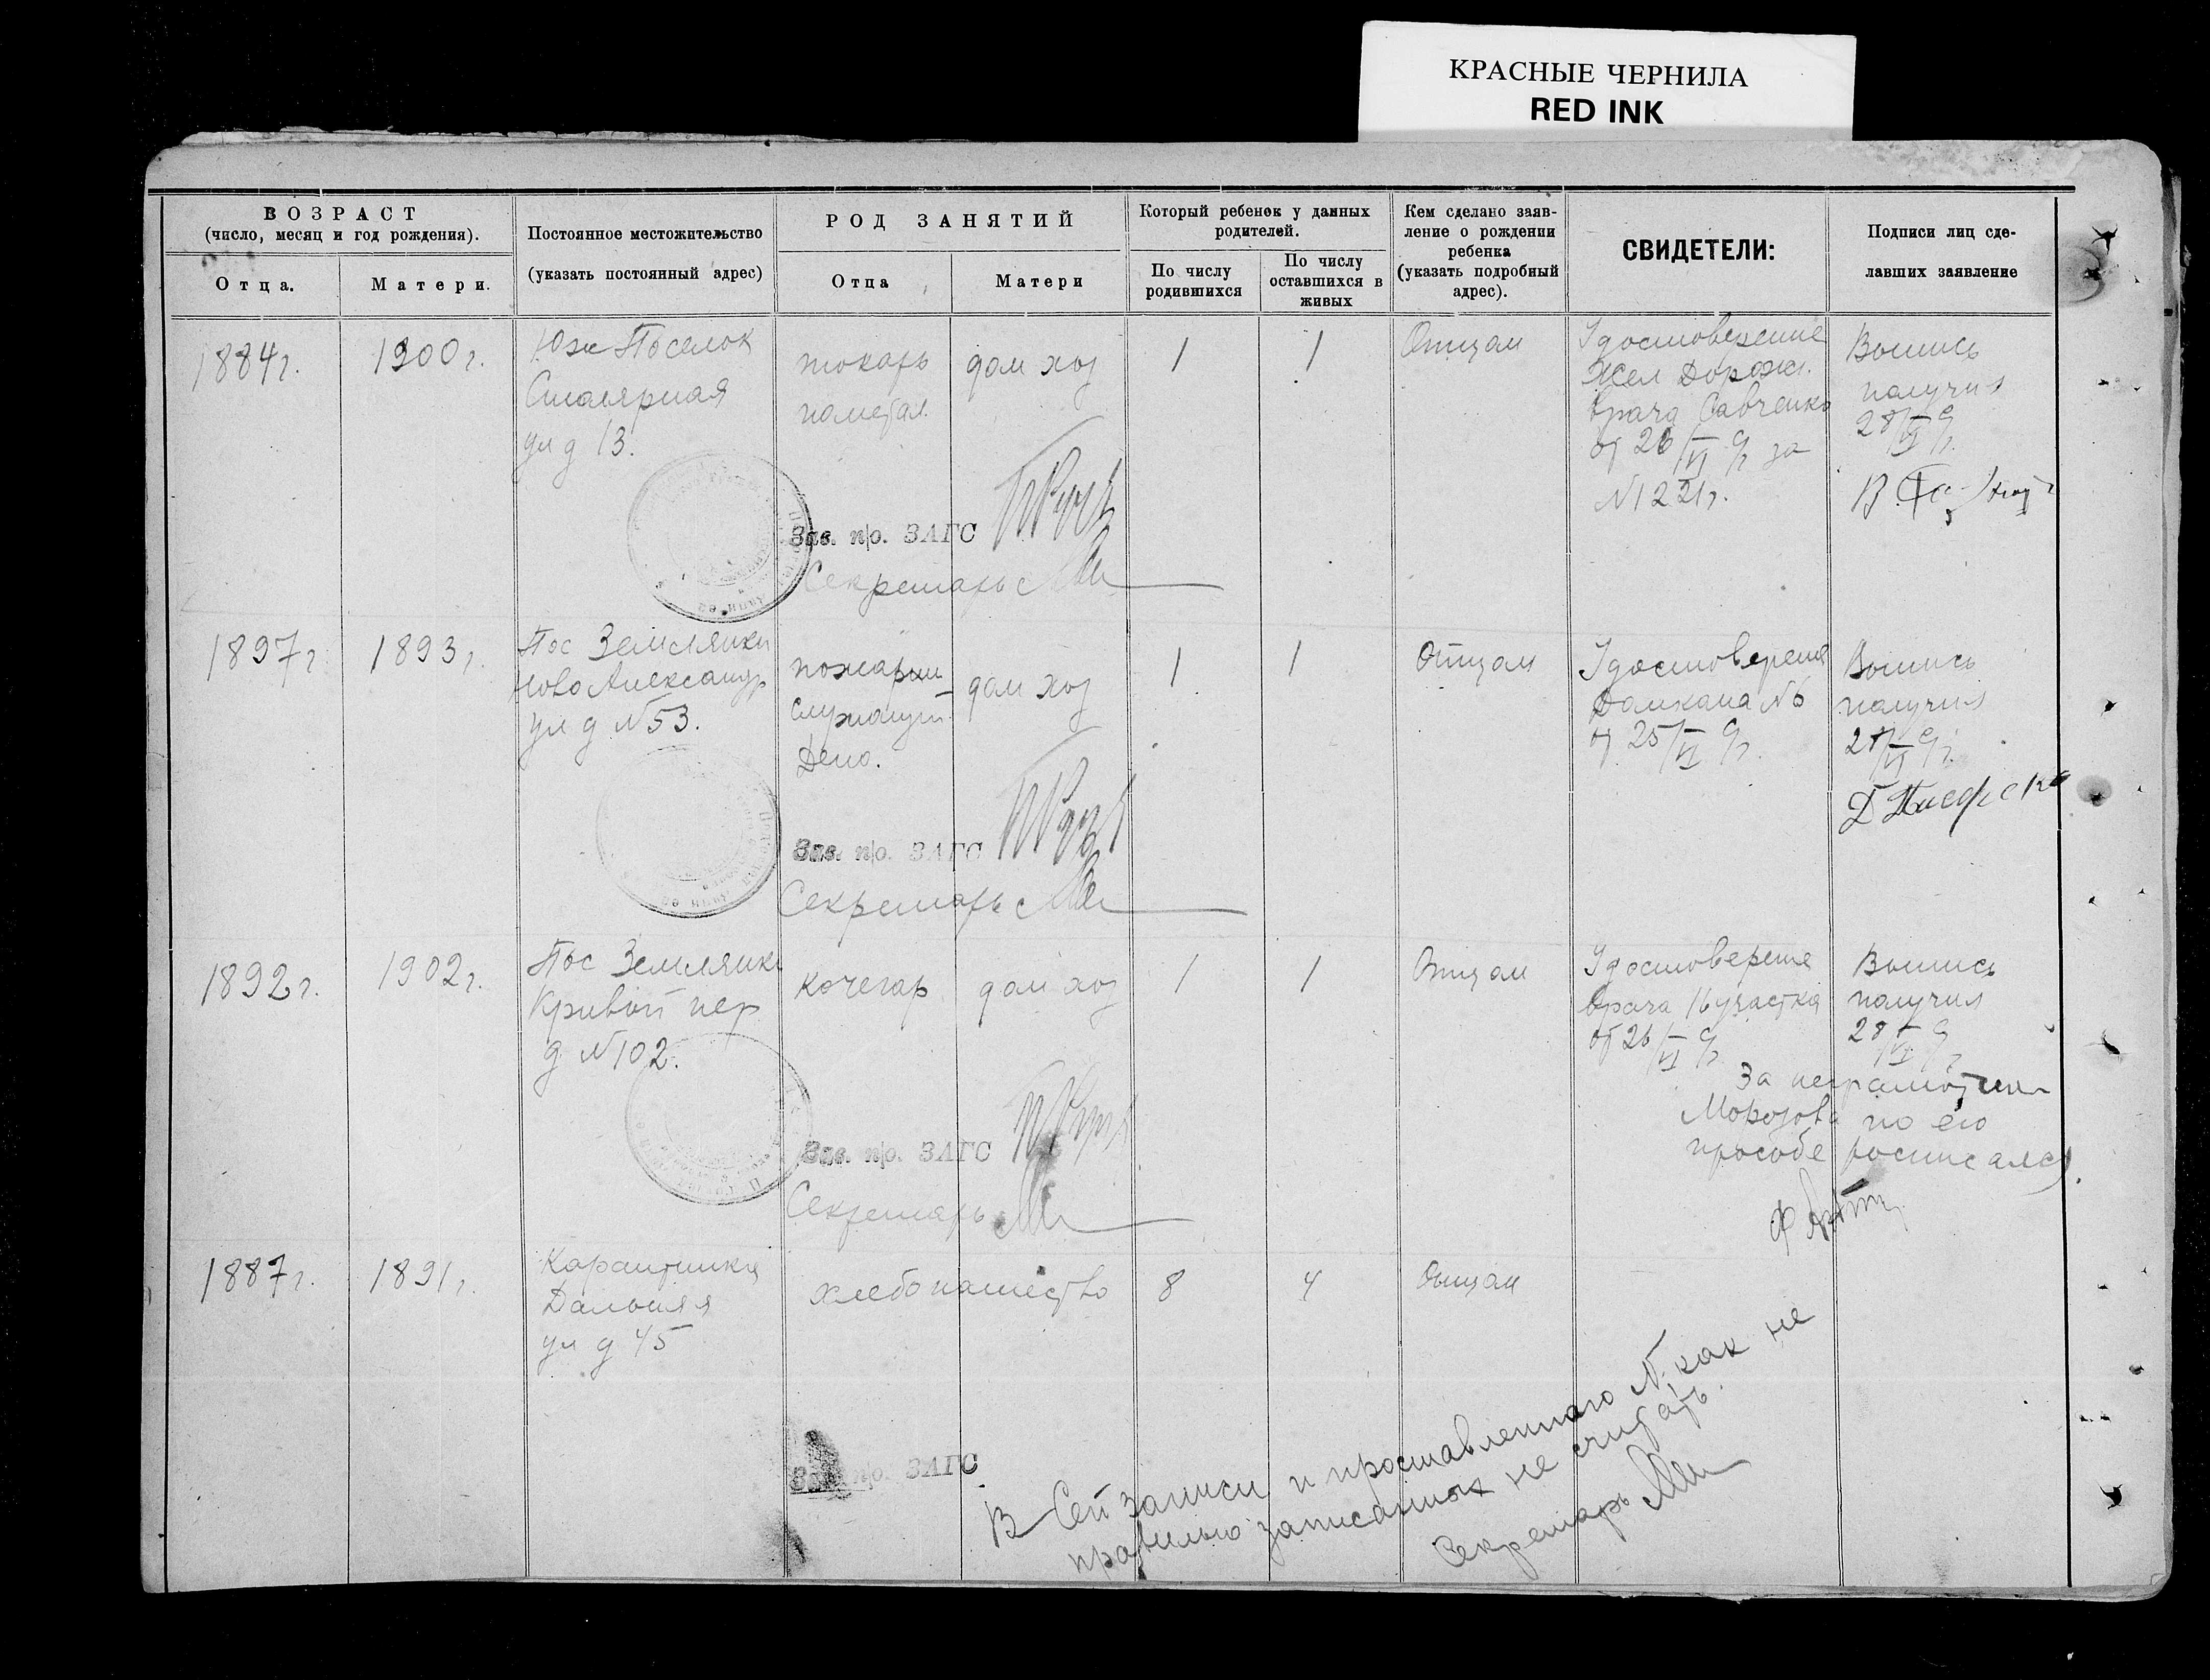 КРАСНЫЕ ЧЕРНИЛА
RED INK
ВОЗРАСТ
(число, месяц и год рождения).
Отца.
Матери.
Постоянное местожительство
(указать постоянный адрес)
РОД ЗАНЯТИЙ
Отца
Матери
Который ребенок у данных
родителей.
По числу
родившихся
По числу
оставшихся в
живых
Кем сделано заяв-
ление о рождении
ребенка
(указать подробный
адрес).
СВИДЕТЕЛИ:
Подписи лиц сде-
лавших заявление
1884г.
1900г.
Юж Поселок
Столярная
ул д 13.
токарь
пометал.
дом хоз
1
1
Отцом
Удостоверение
Жел Дорожн.
врача Савченко
от 26/VI
за
N1221г.
Выпись
получил
28/VI
В.
Зав. п/о. ЗАГС
Секретарь
1897г
1893г.
Пос Землянки
Ново Александр
ул д N53.
пожарн
служащ.
Депо.
дом хоз
1
1
Отцом
Удостоверение
Домкома N6
от 25/VI
Выпись
получил
28/VI
Зав. п/о. ЗАГС
Секретарь
1892г.
1902г.
Пос Землянки
Кривой пер
д N102.
кочегар
дом хоз
1
1
Отцом
Удостоверение
врача 16 участка
от 26/VI
Выпись
получил
28/VI
За неграмотного
Морозова по его
прозьбе росписался
Зав. п/о. ЗАГС
Секретарь
1887г.
1891г.
Карантинка
Дальняя
ул д 45
хлебопашество
8
4
Отцом
Зав. п/о. ЗАГС
В Сей записи и проставленного N. как не
правильно записанных не считать.
Секретарь